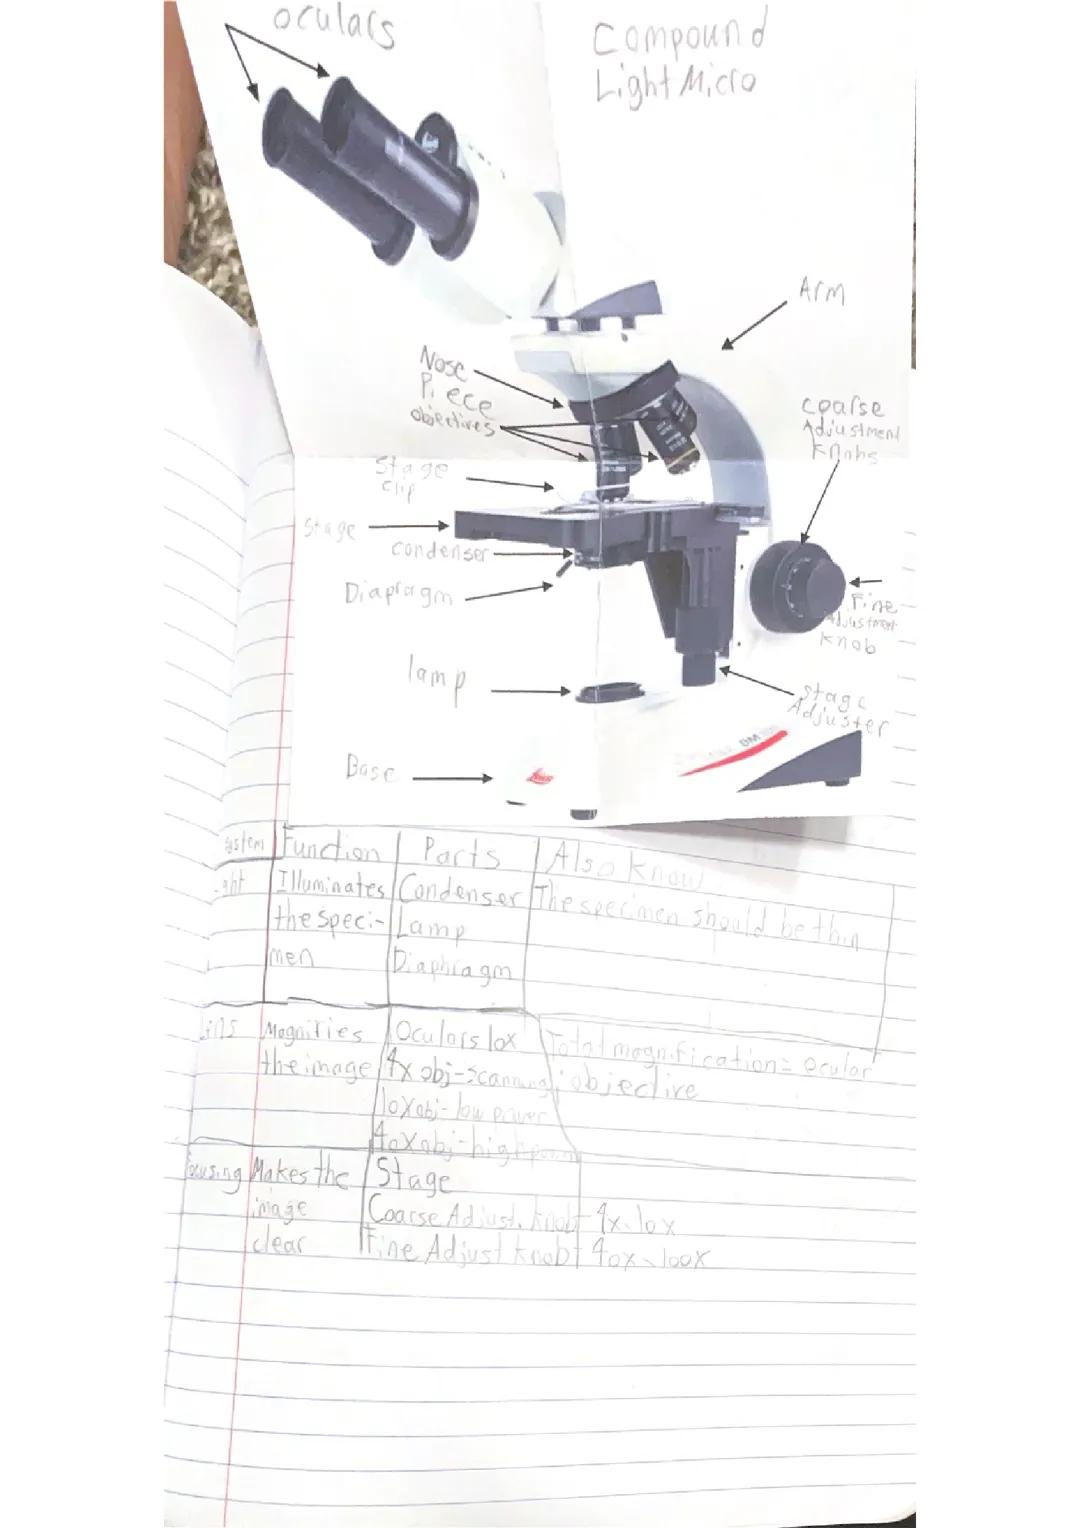 oculars
Compound
Light Micro
Arm
Nose
Piece
objectives
coarse
Adjustment
Knobs
Stage
clip
Stage
condenser
Diapragm
Fine
Adjustment
Knob
lamp
Stage
Adjuster
Base
Leica
DM
System Function Parts Also Know
Light Illuminates Condenser The specimen should be thin
the speci- Lamp
men Diaphragm
Lens Magnifies Oculars 10x Total magnification = ocular
the image 4x obj-scanning objective
10x obj-low power
40x obj-high power
Focusing Makes the Stage
image Coarse Adjust. knob 4x 10x
clear Fine Adjust knob 40x 100x